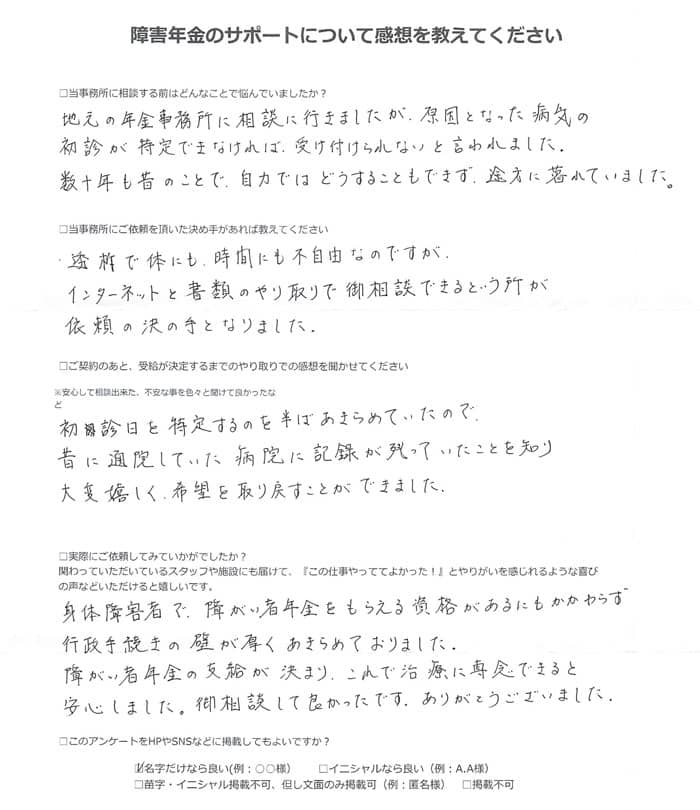 障害年金のサポートについて感想を教えてください
□当事務所に相談する前はどんなことで悩んでいましたか？
地元の年金事務所に相談に行きましたが、原因となった病気の
初診が特定できなければ、受け付けられないと言われました。
数十年も昔のことで、自力ではどうすることもできず、途方に暮れていました。
□当事務所にご依頼を頂いた決め手があれば教えてください
・透析で体にも、時間にも不自由なのですが、
インターネットと書類のやり取りで御相談できるという所が
依頼の決の手となりました。
□ご契約のあと、受給が決定するまでのやり取りでの感想を聞かせてください
※安心して相談出来た、不安な事を色々と聞けて良かったな
ど
初診日を特定するのを半ばあきらめていたので、
昔に通院していた病院に記録が残っていたことを知り
大変嬉しく、希望を取り戻すことができました。
□実際にご依頼してみていかがでしたか？
関わっていただいているスタッフや施設にも届けて、『この仕事やっててよかった！』とやりがいを感じれるような喜び
の声などいただけると嬉しいです。
身体障害者で、障がい者年金をもらえる資格があるにもかかわらず
行政手続きの壁が厚くあきらめておりました。
障がい者年金の支給が決まり、これで治療に専念できると
安心しました。御相談して良かったです。ありがとうございました。
□このアンケートをHPやSNSなどに掲載してもよいですか？
☑名字だけなら良い(例：○○様）　□イニシャルなら良い（例：A.A様）
□苗字・イニシャル掲載不可、但し文面のみ掲載可（例：匿名様）　□掲載不可